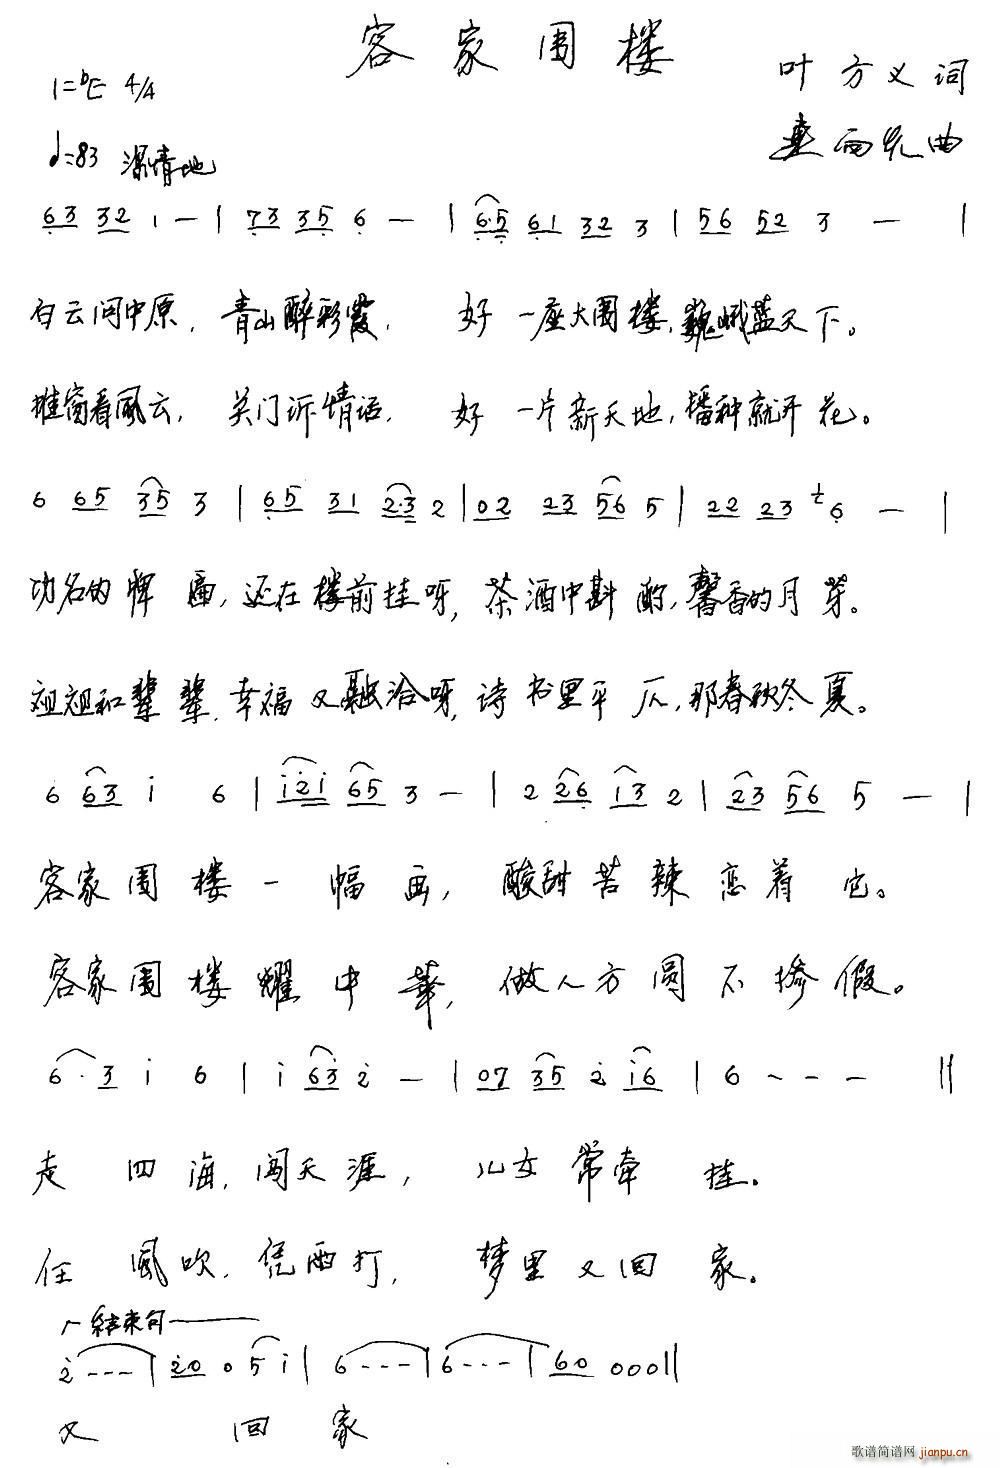 客家围楼
1=bE 4/4
叶方义词
♩=83 深情地
西 曲
63 32 1 — | 73 335 6 — | 6·5 61 32 3 | 56 52 3 — |
白云问中原，青山醉彩霞， 好一座大围楼，巍峨蓝天下。
推窗看风云，关门诉情话， 好一片新天地，播种就开花。
6 65 35 3 | 65 31 2·3 2 | 02 23 56 5 | 22 23 6 — |
功名的牌匾，还在楼前挂呀，茶酒中斟酌，馨香的月芽。
祖祖和辈辈，幸福又融洽呀，诗书里平仄，那春秋冬夏。
6 63 i 6 | i2i 65 3 — | 2 26 13 2 | 23 56 5 — |
客家围楼一幅画，酸甜苦辣恋着它。
客家围楼耀中华，做人方圆不掺假。
6·3 i 6 | i 63 2 — | 07 35 2 i6 | 6 - - - ||
走四海，闯天涯，儿女常牵挂。
任风吹，凭雨打，梦里又回家。
结束句
2 - - - | 20 0 5 i | 6 - - - | 6 - - - | 60 000 ||
又回家
歌谱简谱网 jianpu.cn